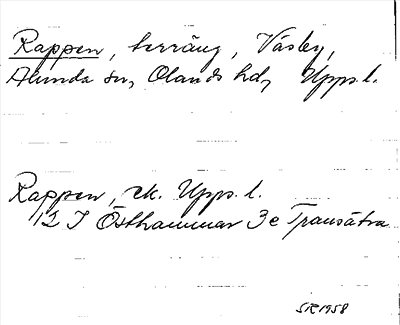 Rappen, terräng, Väsby,
Alunda sn, Olands hd, Upps.l.
Rappen, ek. Upps. l.
12 I Östhammar 3e Transätra
SR 1958